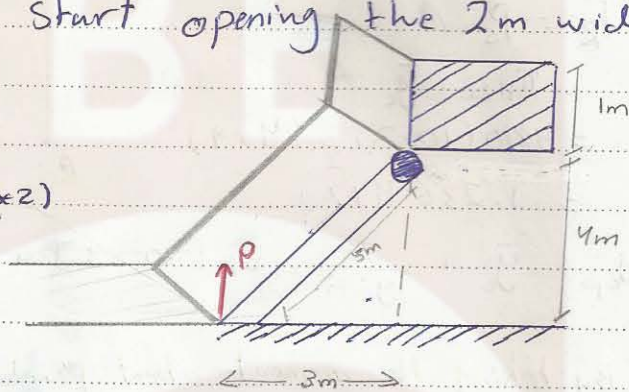 Start opening the 2m wid
1m
P
5m
4m
3m